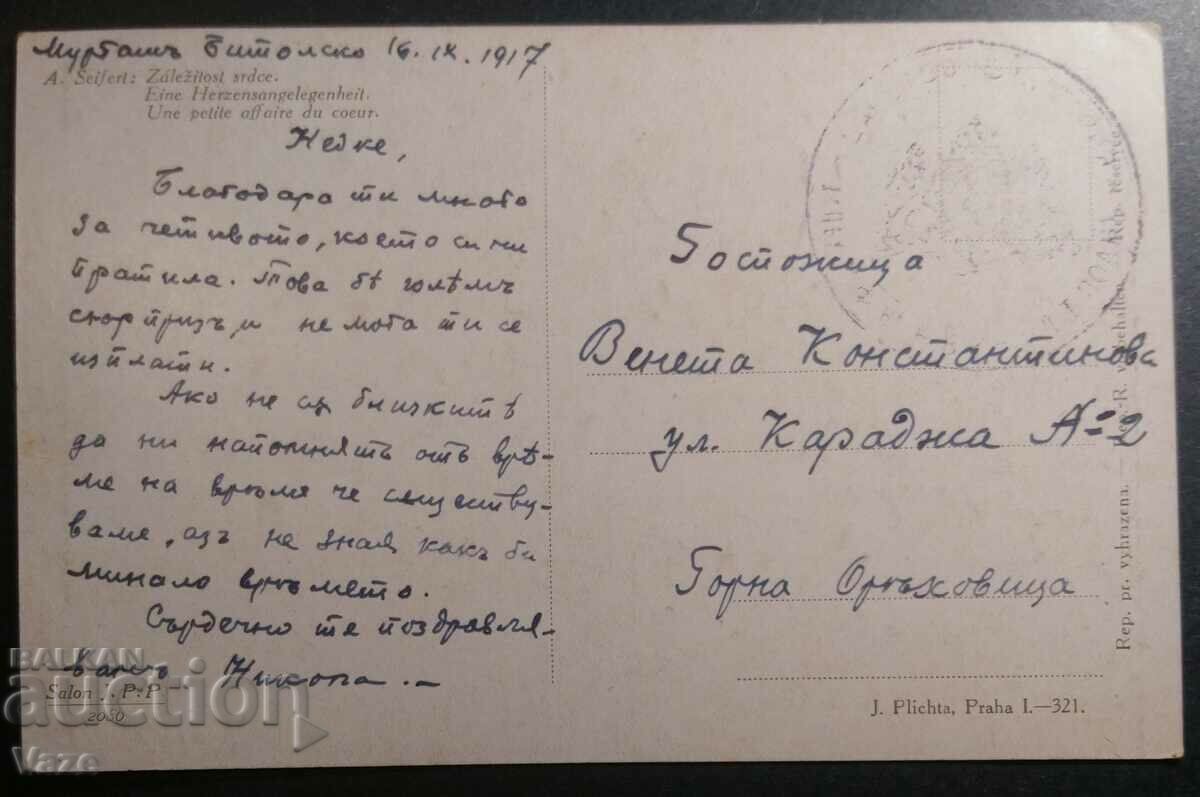 Мурташъ Битолско 16. IX. 1917
A. Seifert: Záležitost srdce.
Eine Herzensangelegenheit.
Une petite affaire du coeur.
Недке,
Благодаря ти много
за четивото, което си ни
пратила. Това бѣ голѣмъ
сюрпризъ и не мога ти се
изплати.
Ако не са близкитѣ
да ни напомнятъ отъ врѣ-
ме на врѣме че сѫществу-
ваме, азъ не зная какъ би
минало врѣмето.
Сърдечно те поздравля-
вамъ Никола.
Salon J. P. P.
2060
Госпожица
Венета Константинова
ул. Караджа №2
Горна Орѣховица
J. Plichta, Praha I.—321.
Rep. pr. vyhrazena.
BALKAN
auction
Vaze